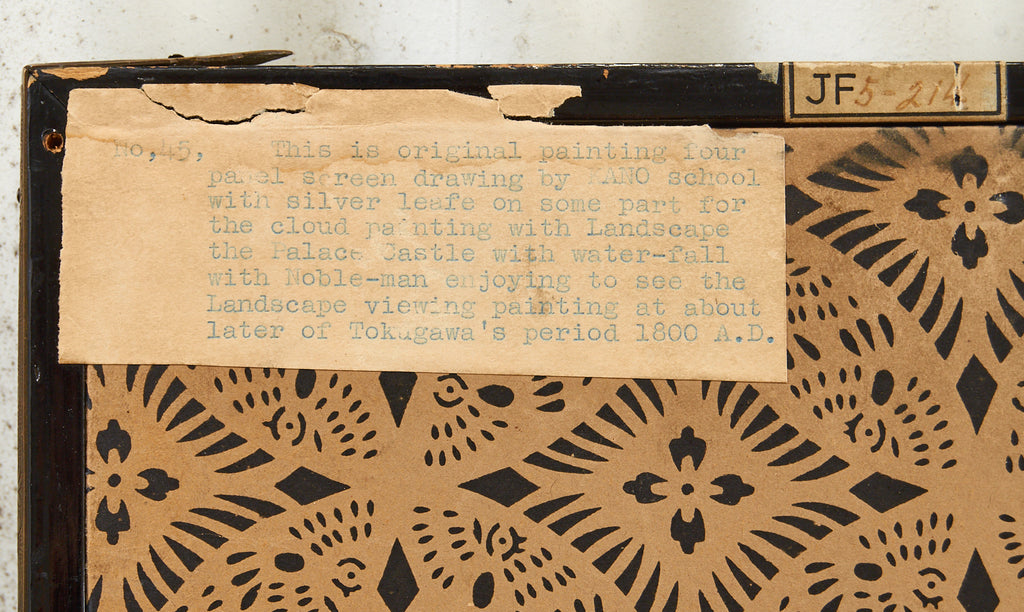 JF 5-214
No,45, This is original painting four
panel screen drawing by KANO school
with silver leafe on some part for
the cloud painting with Landscape
the Palace Castle with water-fall
with Noble-man enjoying to see the
Landscape viewing painting at about
later of Tokugawa's period 1800 A.D.